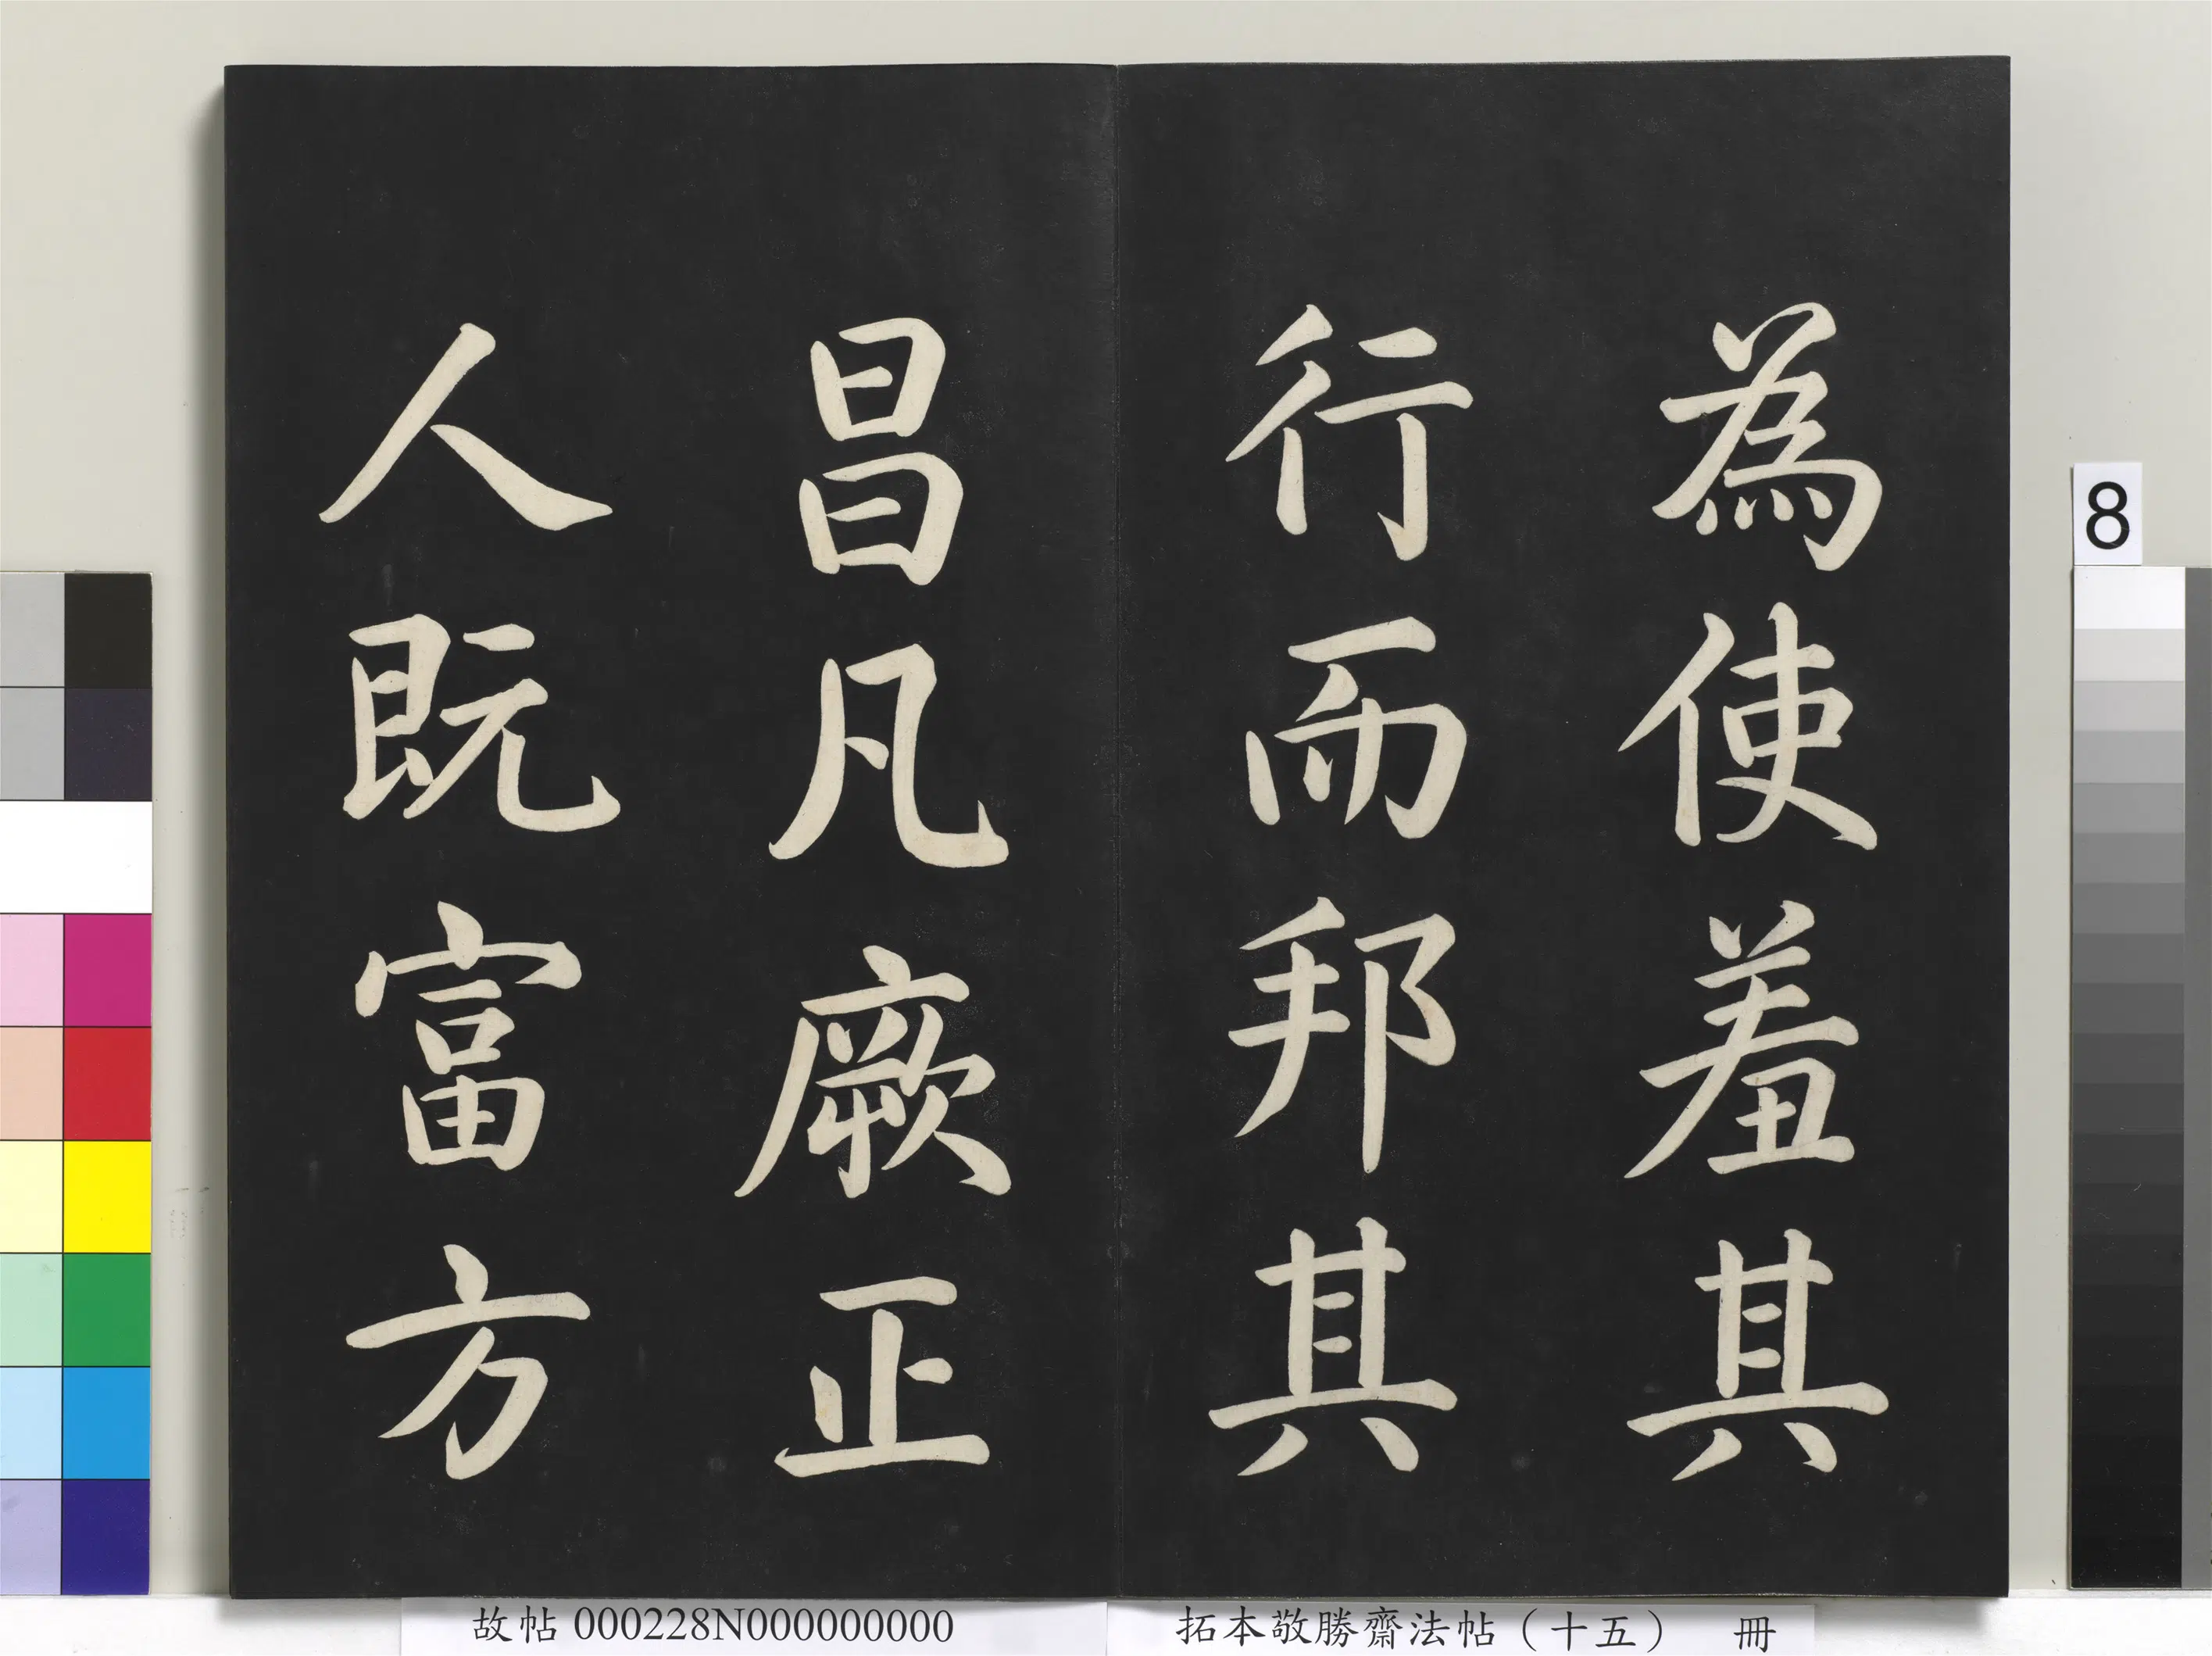 為使羞其
行而邦其
昌凡厥正
人既富方
8
故帖 000228N000000000
拓本敬勝齋法帖（十五） 冊